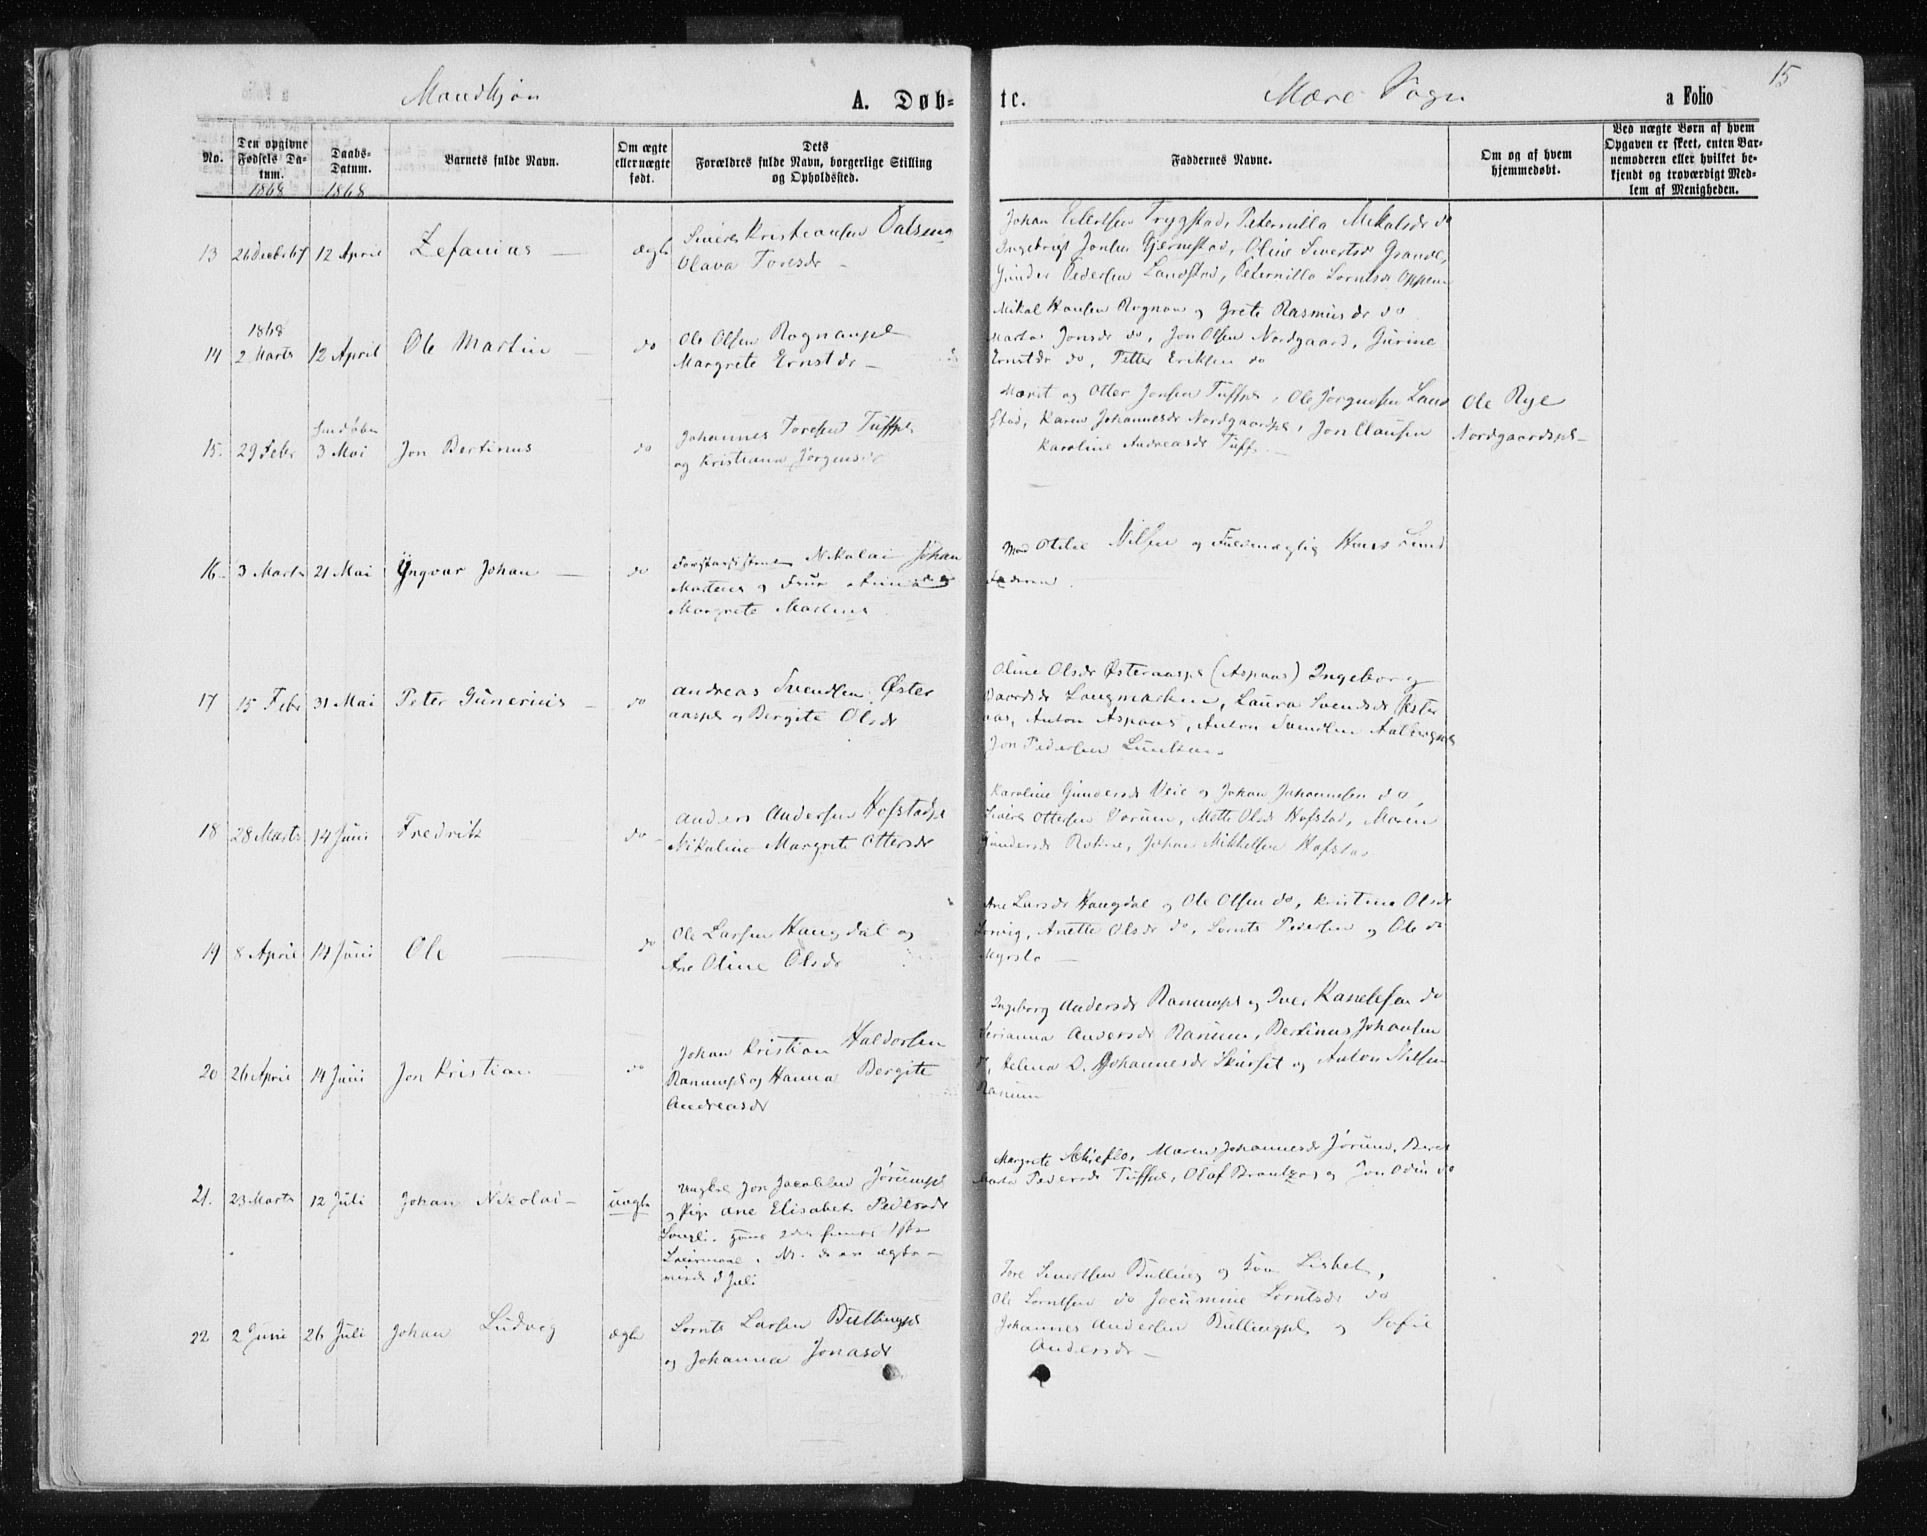 15
Mandkjøn A. Døb- te. Mære Sogn a Folio
No.
Den opgivne Fødsels Datum.
1868
Daabs-Datum.
1868
Barnets fulde Navn.
Om ægte eller uægte født.
Dets Forældres fulde Navn, borgerlige Stilling og Opholdssted.
Faddernes Navne.
Om og af hvem hjemmedøbt.
Ved uægte Børn af hvem Opgaven er skeet, enten Barnemoderen eller hvilket bekjendt og troværdigt Medlem af Menigheden.
13 26 Decbr 67 12 April Zefanias ægte
Sivert Kristiansen Dalsmo
Olava Toresdr
Johan Eilertsen Trygstad, Peternilla Mikalsdr do
Ingebrigt Jonsen Gjærnestad, Oline Sivertsdr Grande,
Gunder Pedersen Landstad, Peternilla Lorntsdr
1868
14 2 Marts 12 April Ole Martin do
Ole Olsen Rognanpl
Margrete Ernstdr
Mikal Hansen Rognan og Grete Rasmusdr do
Marta Jonsdr do, Jon Olsen Nordgaard, Gurine
Ernstdr do, Petter Eriksen do
15. 29 Febr 3 Mai Jon Bertinus do
Johannes Toresen Tuffpl
og Kristiana Jørgensdr
Marit og Otter Jonsen Tuffpl, Ole Jørgensen Land
stad, Karen Johannesdr Nordgaardspl, Jon Clausen
Karoline Andreasdr Tuff
Ole Rye
Nordgaardspl
16 3 Marts 21 Mai Yngvar Johan do
Forstassistent Nikolai Johan
Martens og Frue Anna
Margrete Martens
Mad Otilie Nilsen og Fuldmægtig Hans Lund
Faderen
17 15 Febr 31 Mai Peter Gunerius do
Andreas Svendsen Øster
aaspl og Bergite Olsdr
Oline Olsdr Østeraaspl (Aspaas) Ingeborg
Baardsdr Langmarken, Laura Svendsdr Øster
aas, Anton Aspaas, Anton Svendsen
Jon Pedersen
18 28 Marts 14 Juni Fredrik do
Anders Andersen Hofstadpl
Nikoline Margrete Ottersdr
Karoline Gundersdr Veie og Johan Johannesen do,
Sivert Ottersen Vorum, Mette Olsdr Hofstad, Maren
Gundersdr, Johan Mikkelsen Hofstad
19 8 April 14 Juni Ole do
Ole Larsen Haugdal og
Ane Oline Olsdr
Ane Larsdr Haugdal og Ole Olsen do, Kristine Olsdr
Anette Olsdr do, Lornts Pedersen og Ole do
20 26 April 14 Juni Jon Kristian do
Johan Kristian Haldorsen
Ranumpl og Hanna Bergite
Andreasdr
Ingeborg Andersdr Ranumpl og Iver Kanelesen do
Serianna Andersdr Ranum, Bertinus Johansen
do, Helena D. Johannesdr Skurset og Anton Nilsen
Ranum
21. 23 Marts 12 Juli Johan Nikolai uægte
Ungkl Jon Jacobsen Jørumpl
og Pige Ane Elisabet Pedersdr
Leiermaal
Juli
Margrete, Maren Johannesdr Jørum, Beret
Marta Pedersdr Tuffpl, Olaf Brandtzæg og Jon Odin do
22 2 Juni 26 Juli Johan Ludvig ægte
Lornts Larsen Bullingpl
og Johanna Jonasdr
Tore Sivertsen Bulling og Kone Lisbet,
Ole Lorntsen do Jacumine Lorntsdr do
Johannes Andersen Bullingpl og Sofie
Andersdr